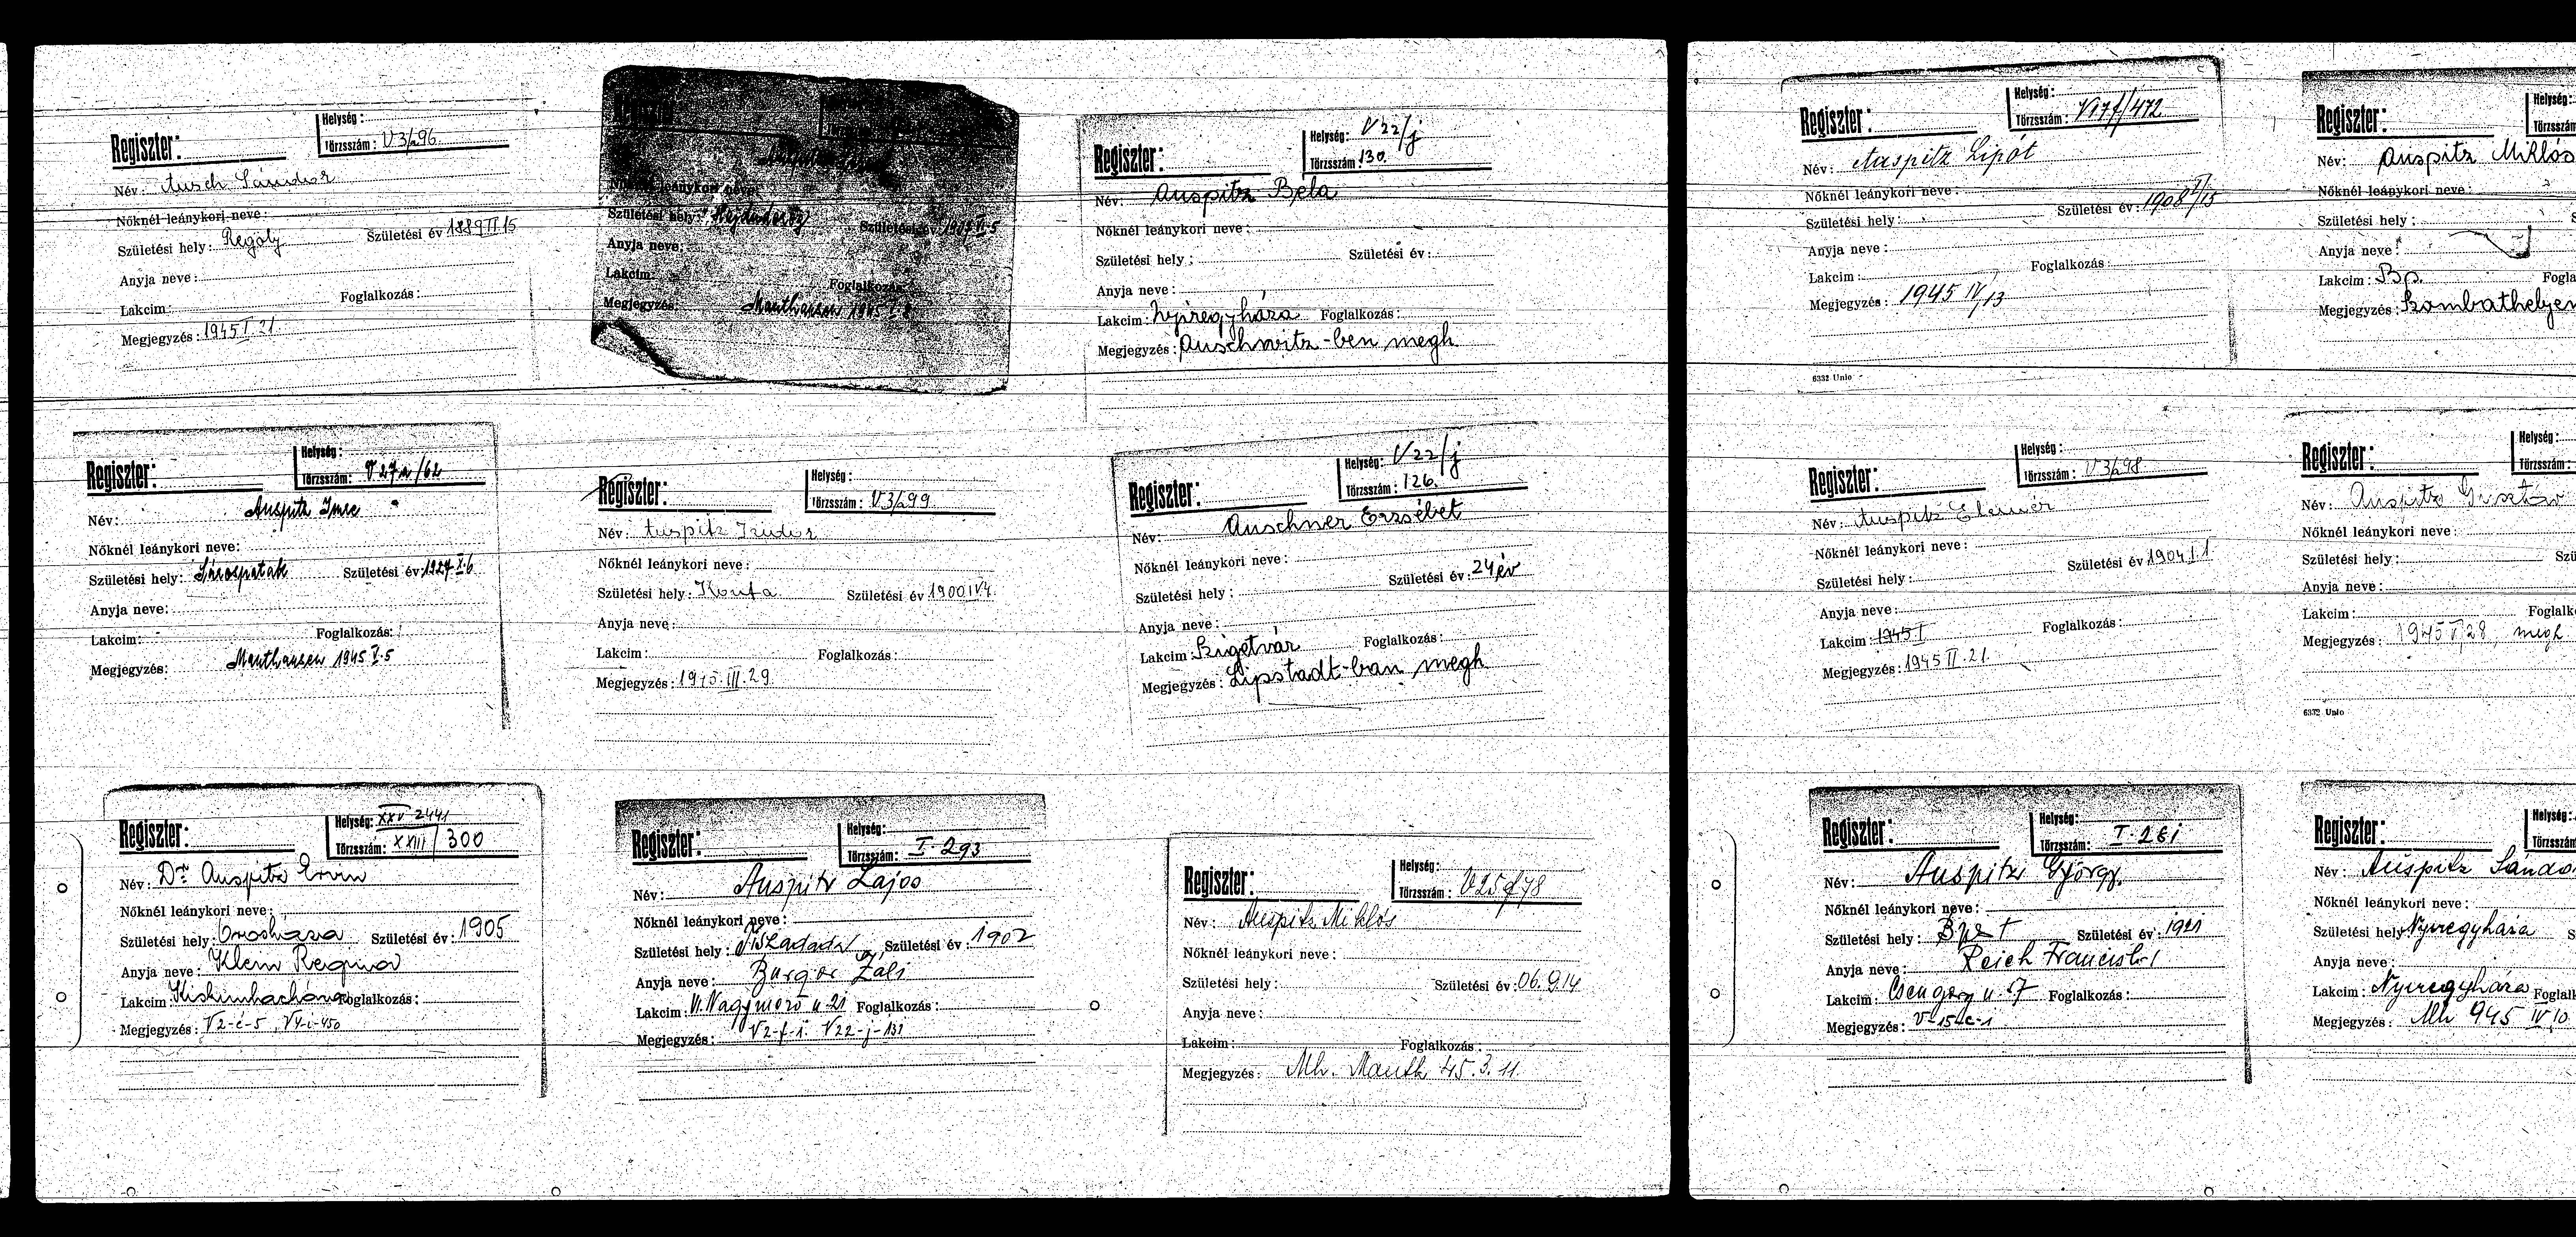 Regiszter:
Helység:
Törzsszám: V3/296
Név: Ausch Sándor
Nőknél leánykori neve:
Születési hely: Regöly Születési év 1889 II 15
Anyja neve:
Lakcim: Foglalkozás:
Megjegyzés: 1945 I 21.
Nőknél leánykori neve:
Születési hely: Születési év:
Anyja neve:
Lakcim: Foglalkozás:
Megjegyzés: Mauthausen 1945
Regiszter:
Helység: V 22/j
Törzsszám: 130.
Név: Auspitz Béla
Nőknél leánykori neve:
Születési hely: Születési év:
Anyja neve:
Lakcim: Nyiregyháza Foglalkozás:
Megjegyzés: Auschwitz-ben megh
Regiszter:
Helység:
Törzsszám: V 27a/62
Név: Auspitz Imre
Nőknél leánykori neve:
Születési hely: Sárospatak Születési év: 1927 X.6
Anyja neve:
Lakcim: Foglalkozás:
Megjegyzés: Mauthausen 1945 V.5
Regiszter:
Helység:
Törzsszám: V3/299
Név: Auspitz Izidor
Nőknél leánykori neve:
Születési hely: Születési év 1900 IV 4.
Anyja neve:
Lakcim: Foglalkozás:
Megjegyzés: 1945.III.29.
Regiszter:
Helység: V 22/j
Törzsszám: 126.
Név: Auschner Erzsébet
Nőknél leánykori neve:
Születési hely: Születési év: 24 év
Anyja neve:
Lakcim: Szigetvár Foglalkozás:
Megjegyzés: Lipstadt-ban megh
Regiszter:
Helység: XXV 2441
Törzsszám: XXIII/300
Név: Dr. Auspitz Ervin
Nőknél leánykori neve:
Születési hely: Orosháza Születési év: 1905
Anyja neve: Klein Regina
Lakcim: Foglalkozás:
Megjegyzés: V2-c-5, V4-i-450
Regiszter:
Helység:
Törzsszám: I. 293
Név: Auspitz Lajos
Nőknél leánykori neve:
Születési hely: Tiszadada Születési év: 1902
Anyja neve: Burger Záli
Lakcim: Nagymező u. 21 Foglalkozás:
Megjegyzés: V2-f-i. V22-j-132
Regiszter:
Helység:
Törzsszám: V25f78
Név: Auspitz Miklós
Nőknél leánykori neve:
Születési hely: Születési év: 06.9.14
Anyja neve:
Lakcim: Foglalkozás:
Megjegyzés: Mh. Mauth 45.3.11.
Regiszter:
Helység:
Törzsszám: V17f/472
Név: Auspitz Lipót
Nőknél leánykori neve:
Születési hely: Születési év:
Anyja neve:
Lakcim: Foglalkozás:
Megjegyzés: 1945 IV/13
6332 Unio
Regiszter:
Helység:
Törzsszám
Név: Auspitz Miklós
Nőknél leánykori neve:
Születési hely:
Anyja neve:
Lakcim: Bp. Fogla
Megjegyzés: Szombathelyen
Regiszter:
Helység:
Törzsszám: V3/298
Név: Auspitz Elemér
Nőknél leánykori neve:
Születési hely: Születési év 1904 I.1
Anyja neve:
Lakcim: 1945 I Foglalkozás:
Megjegyzés: 1945 II.21.
Regiszter:
Helység:
Törzsszám:
Név: Auspitz Gusztáv
Nőknél leánykori neve:
Születési hely: Szü
Anyja neve:
Lakcim: Foglalk
Megjegyzés: 1945 V.28, megh
6332 Unio
Regiszter:
Helység:
Törzsszám: I. 281
Név: Auspitz György
Nőknél leánykori neve:
Születési hely: Bpest Születési év: 1921
Anyja neve: Reich
Lakcim: Csengery u. 57 Foglalkozás:
Megjegyzés: V-15-c-1
Regiszter:
Helység:
Törzsszám
Név: Auspitz Sándo
Nőknél leánykori neve:
Születési hely Nyiregyháza S
Anyja neve:
Lakcim: Nyiregyháza Foglal
Megjegyzés: Mh 945 IV 10